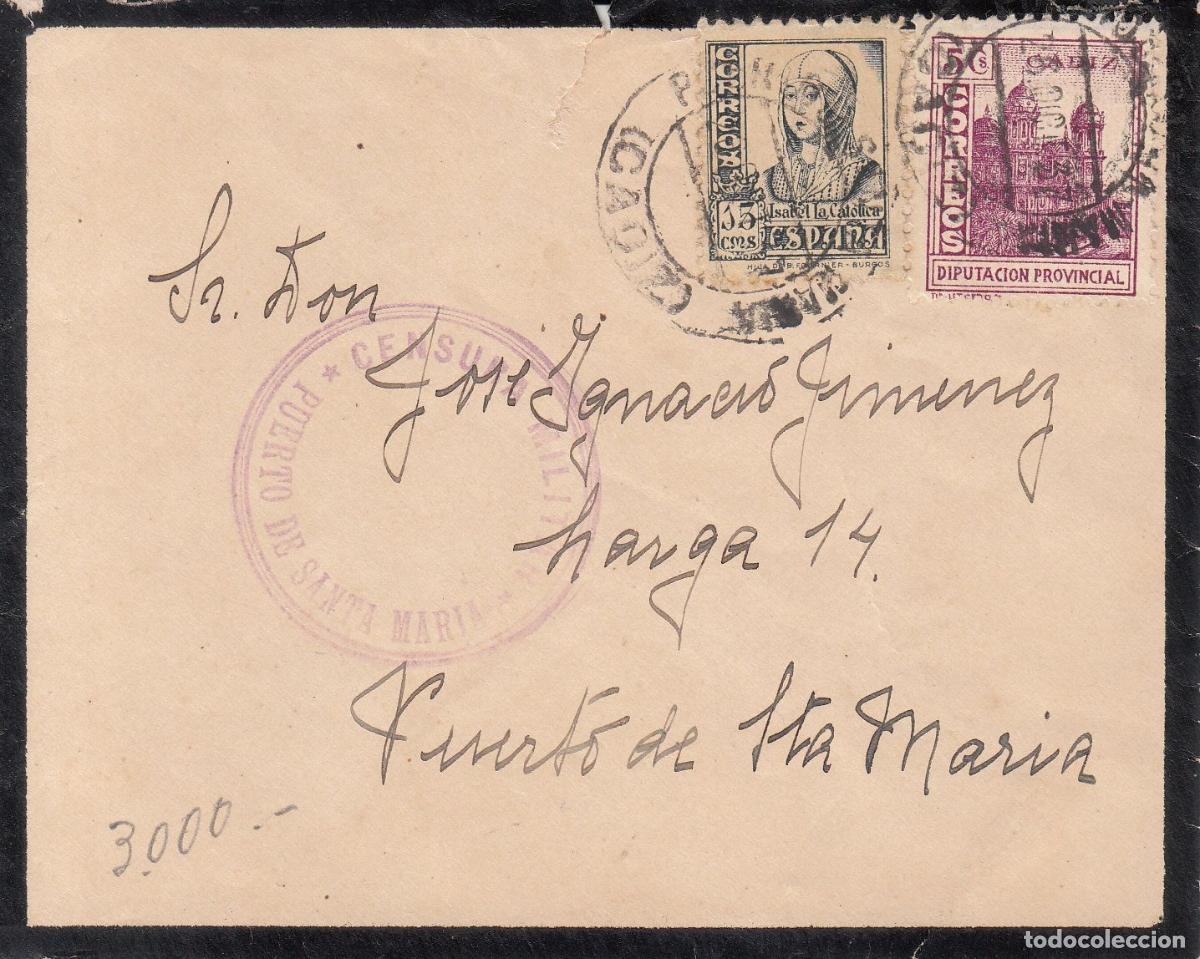 CORREOS
15
CMS
Isabel la Católica
ESPAÑA
HIJA DE B. FOURNIER - BURGOS
5 Cs.
CADIZ
CORREOS
DIPUTACION PROVINCIAL
(CADIZ)
Sr. Don
José Ignacio Jimenez
Larga 14.
Puerto de Sta Maria
★ CENSURA MILITAR ★
PUERTO DE SANTA MARIA
3.000.-
todocoleccion